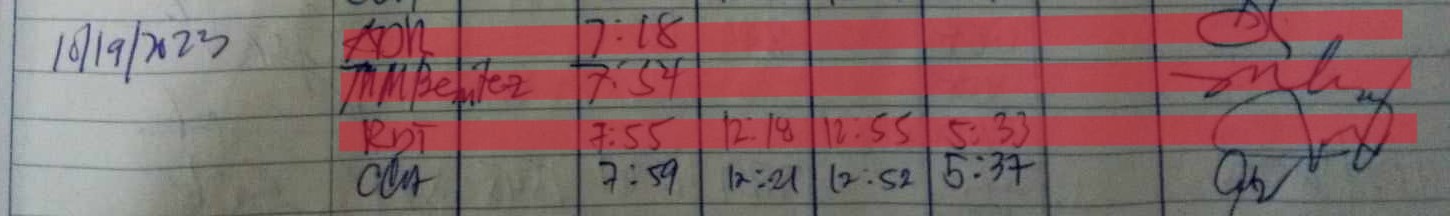 10/19/2023 ADR 7:18
MMBenitez 7:54
RDT 7:55 12:18 12:55 5:33
CCA 7:59 12:21 12:52 5:37